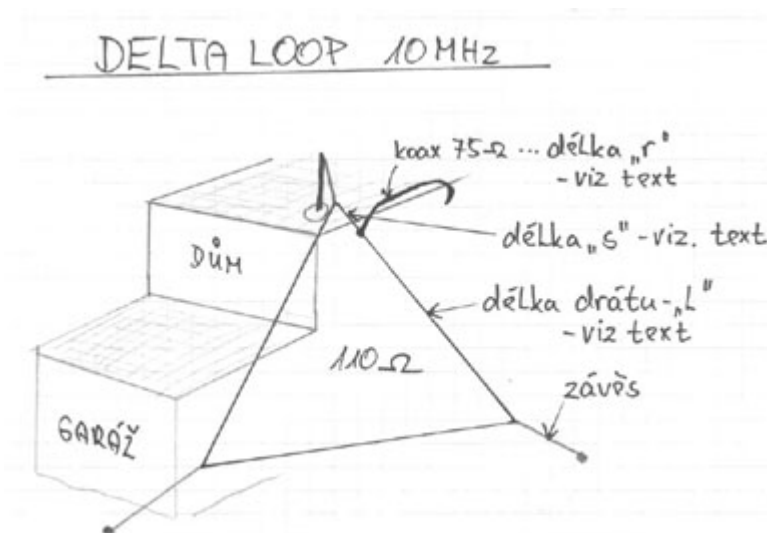 DELTA LOOP 10MHz
koax 75Ω ... délka „r"
- viz text
délka „s" - viz. text
délka drátu - „L"
- viz text
DŮM
110Ω
závěs
GARÁŽ